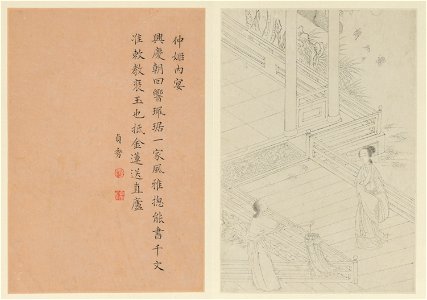 仲姬內宴
興慶朝回響珮琚一家風雅摠能書千文
准敕教裝玉也抵金蓮送直廬
貞秀